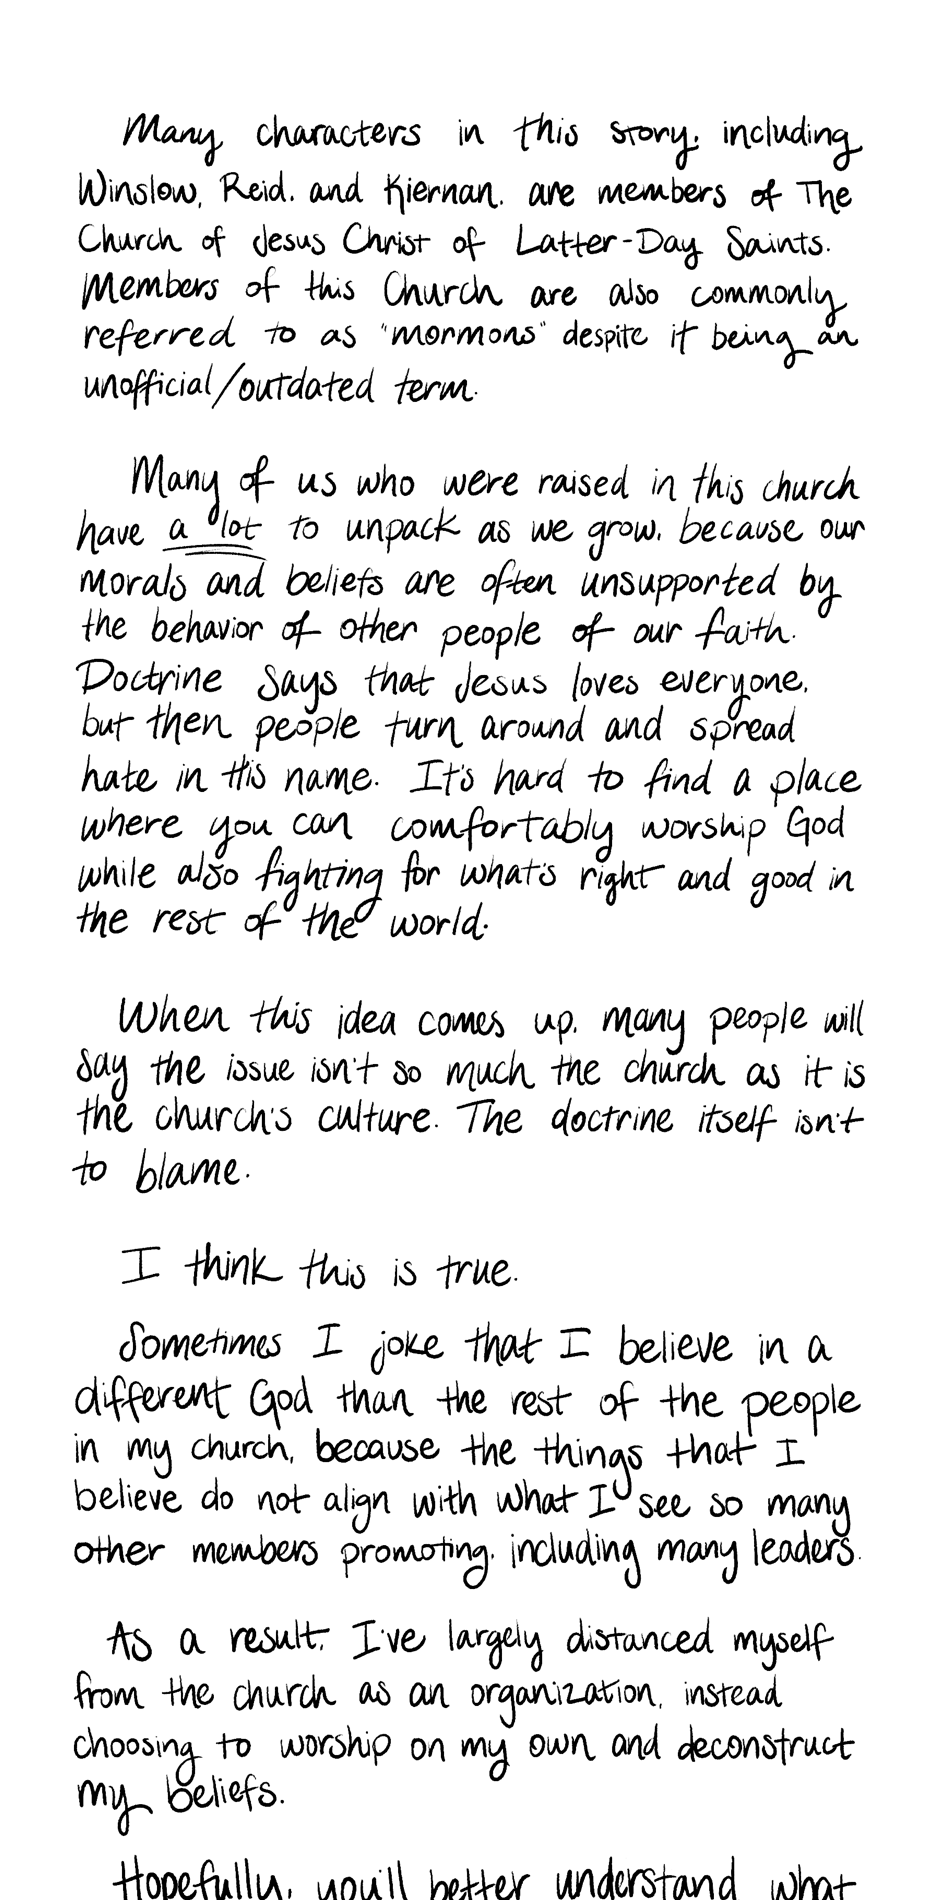 Many characters in this story, including
Winslow, Reid, and Kiernan, are members of The
Church of Jesus Christ of Latter-Day Saints.
Members of this Church are also commonly
referred to as "mormons" despite it being an
unofficial/outdated term.
Many of us who were raised in this church
have a lot to unpack as we grow, because our
morals and beliefs are often unsupported by
the behavior of other people of our faith.
Doctrine says that Jesus loves everyone,
but then people turn around and spread
hate in His name. It's hard to find a place
where you can comfortably worship God
while also fighting for what's right and good in
the rest of the world.
When this idea comes up, many people will
say the issue isn't so much the church as it is
the church's culture. The doctrine itself isn't
to blame.
I think this is true.
Sometimes I joke that I believe in a
different God than the rest of the people
in my church, because the things that I
believe do not align with what I see so many
other members promoting, including many leaders.
As a result, I've largely distanced myself
from the church as an organization, instead
choosing to worship on my own and deconstruct
my beliefs.
Hopefully, you'll better understand what